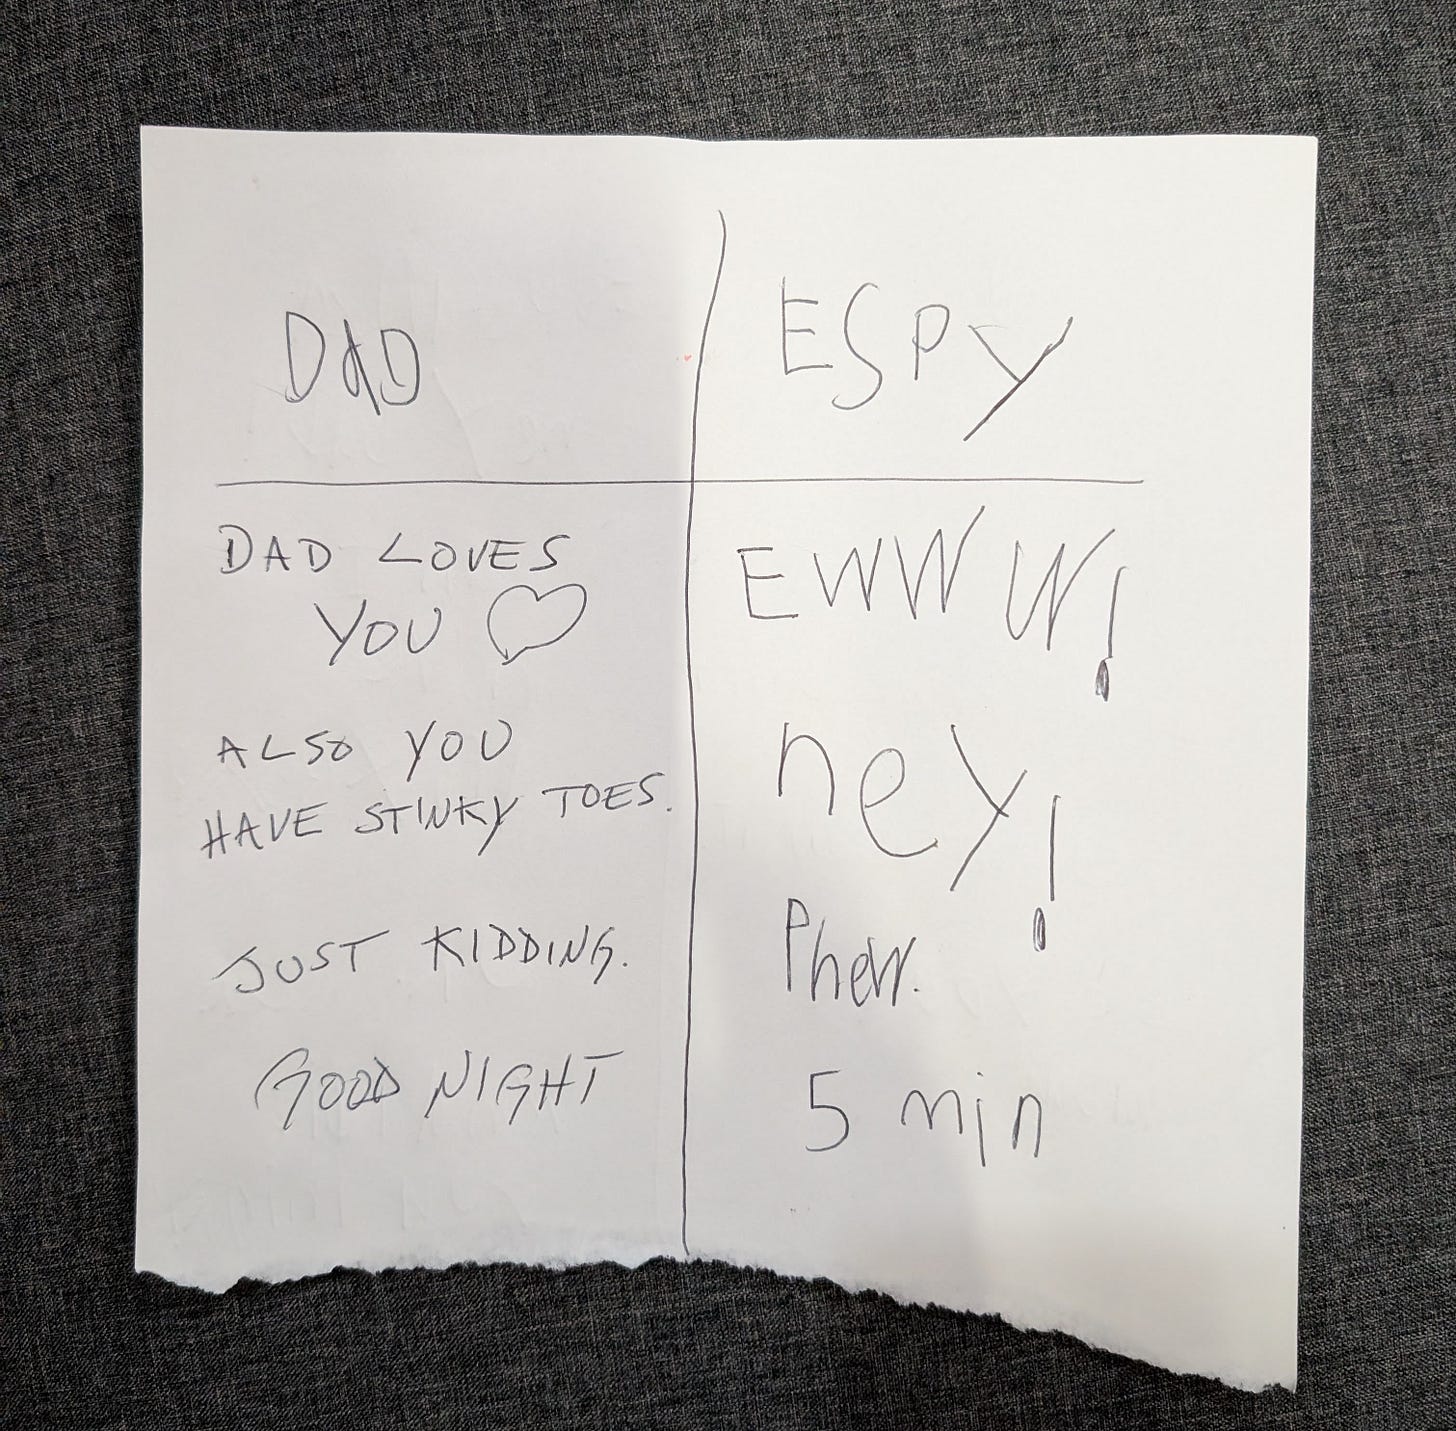 DAD
ESPY
DAD LOVES
YOU ♡
EWWWW!
ALSO YOU
HAVE STINKY TOES.
hey!
JUST KIDDING.
Phew.
GOOD NIGHT
5 min